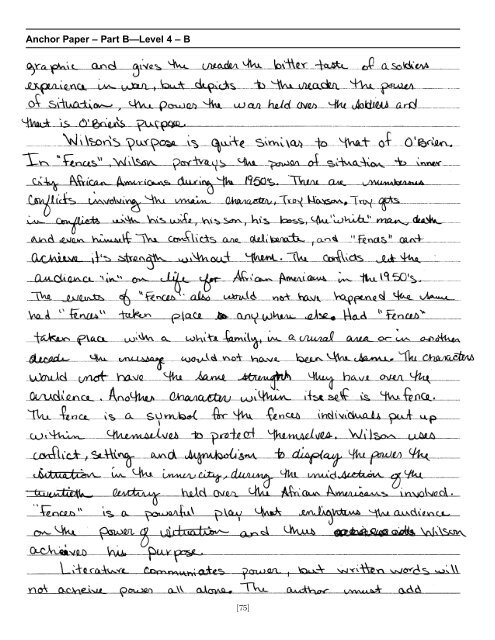 Anchor Paper – Part B—Level 4 – B
graphic and gives the reader the bitter taste of a soldiers
experience in war, but depicts to the reader the power
of situation, the power the war held over the soldiers and
that is O'Brien's purpose.
Wilson's purpose is quite similar to that of O'Brien.
In "Fences", Wilson portrays the power of situation to inner
city African Americans during the 1950's. There are numberous
conflicts involving the main character, Troy Maxson. Troy gets
in conflicts with his wife, his son, his boss, the "white" man, death
and even himself. The conflicts are deliberate, and "Fences" cant
achieve it's strength without them. The conflicts let the
audience "in" on life for African Americans in the 1950's.
The events of "Fences" also would not have happened the same
had "Fences" taken place anywhere else. Had "Fences"
taken place with a white family, in a rural area or in another
decade the message would not have been the same. The characters
would not have the same strength they have over the
audience. Another character within itseself is the fence.
The fence is a symbol for the fences individuals put up
within themselves to protect themselves. Wilson uses
conflict, setting and symbolism to display the power the
situation in the inner city, during the mid section of the
twentieth century held over the African Americans involved.
"Fences" is a powerful play that enlightens the audience
on the power of situation and thus Wilson
acheives his purpose.
Literature communiates power, but written words will
not acheive power all alone. The author must add
[75]